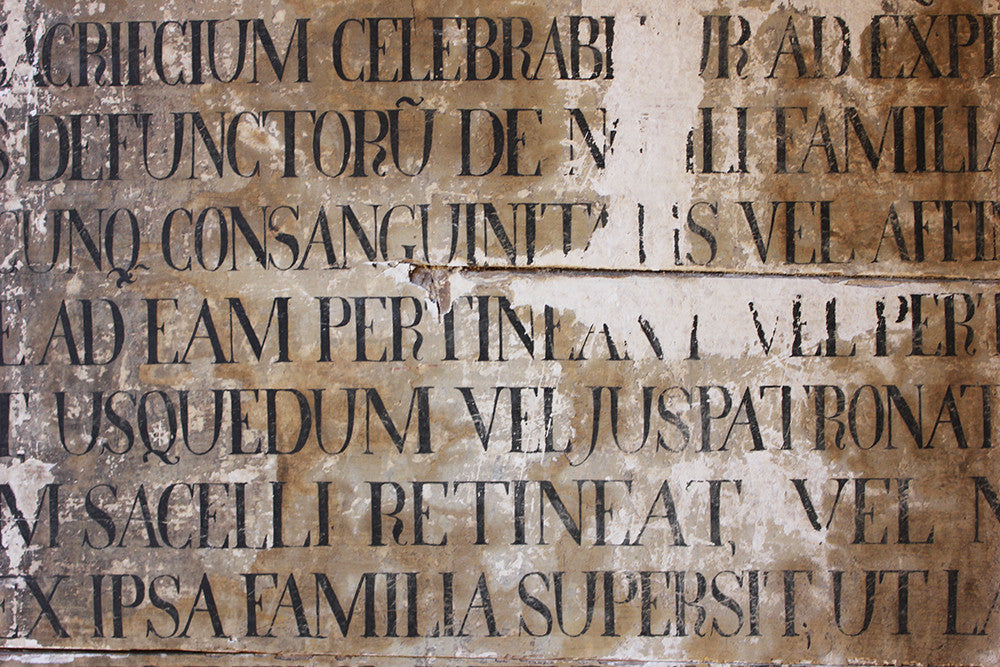 SACRIFICIUM CELEBRABI UR AD EXPI
S DEFUNCTORŨ DE N ILI FAMILIA
CUNQ CONSANGUINITA IIS VEL AFFIN
E AD EAM PERTINEANT VEL PERT
T USQUEDUM VEL JUSPATRONAT
M SACELLI RETINEAT, VEL N
EX IPSA FAMILIA SUPERSIT, UT LA